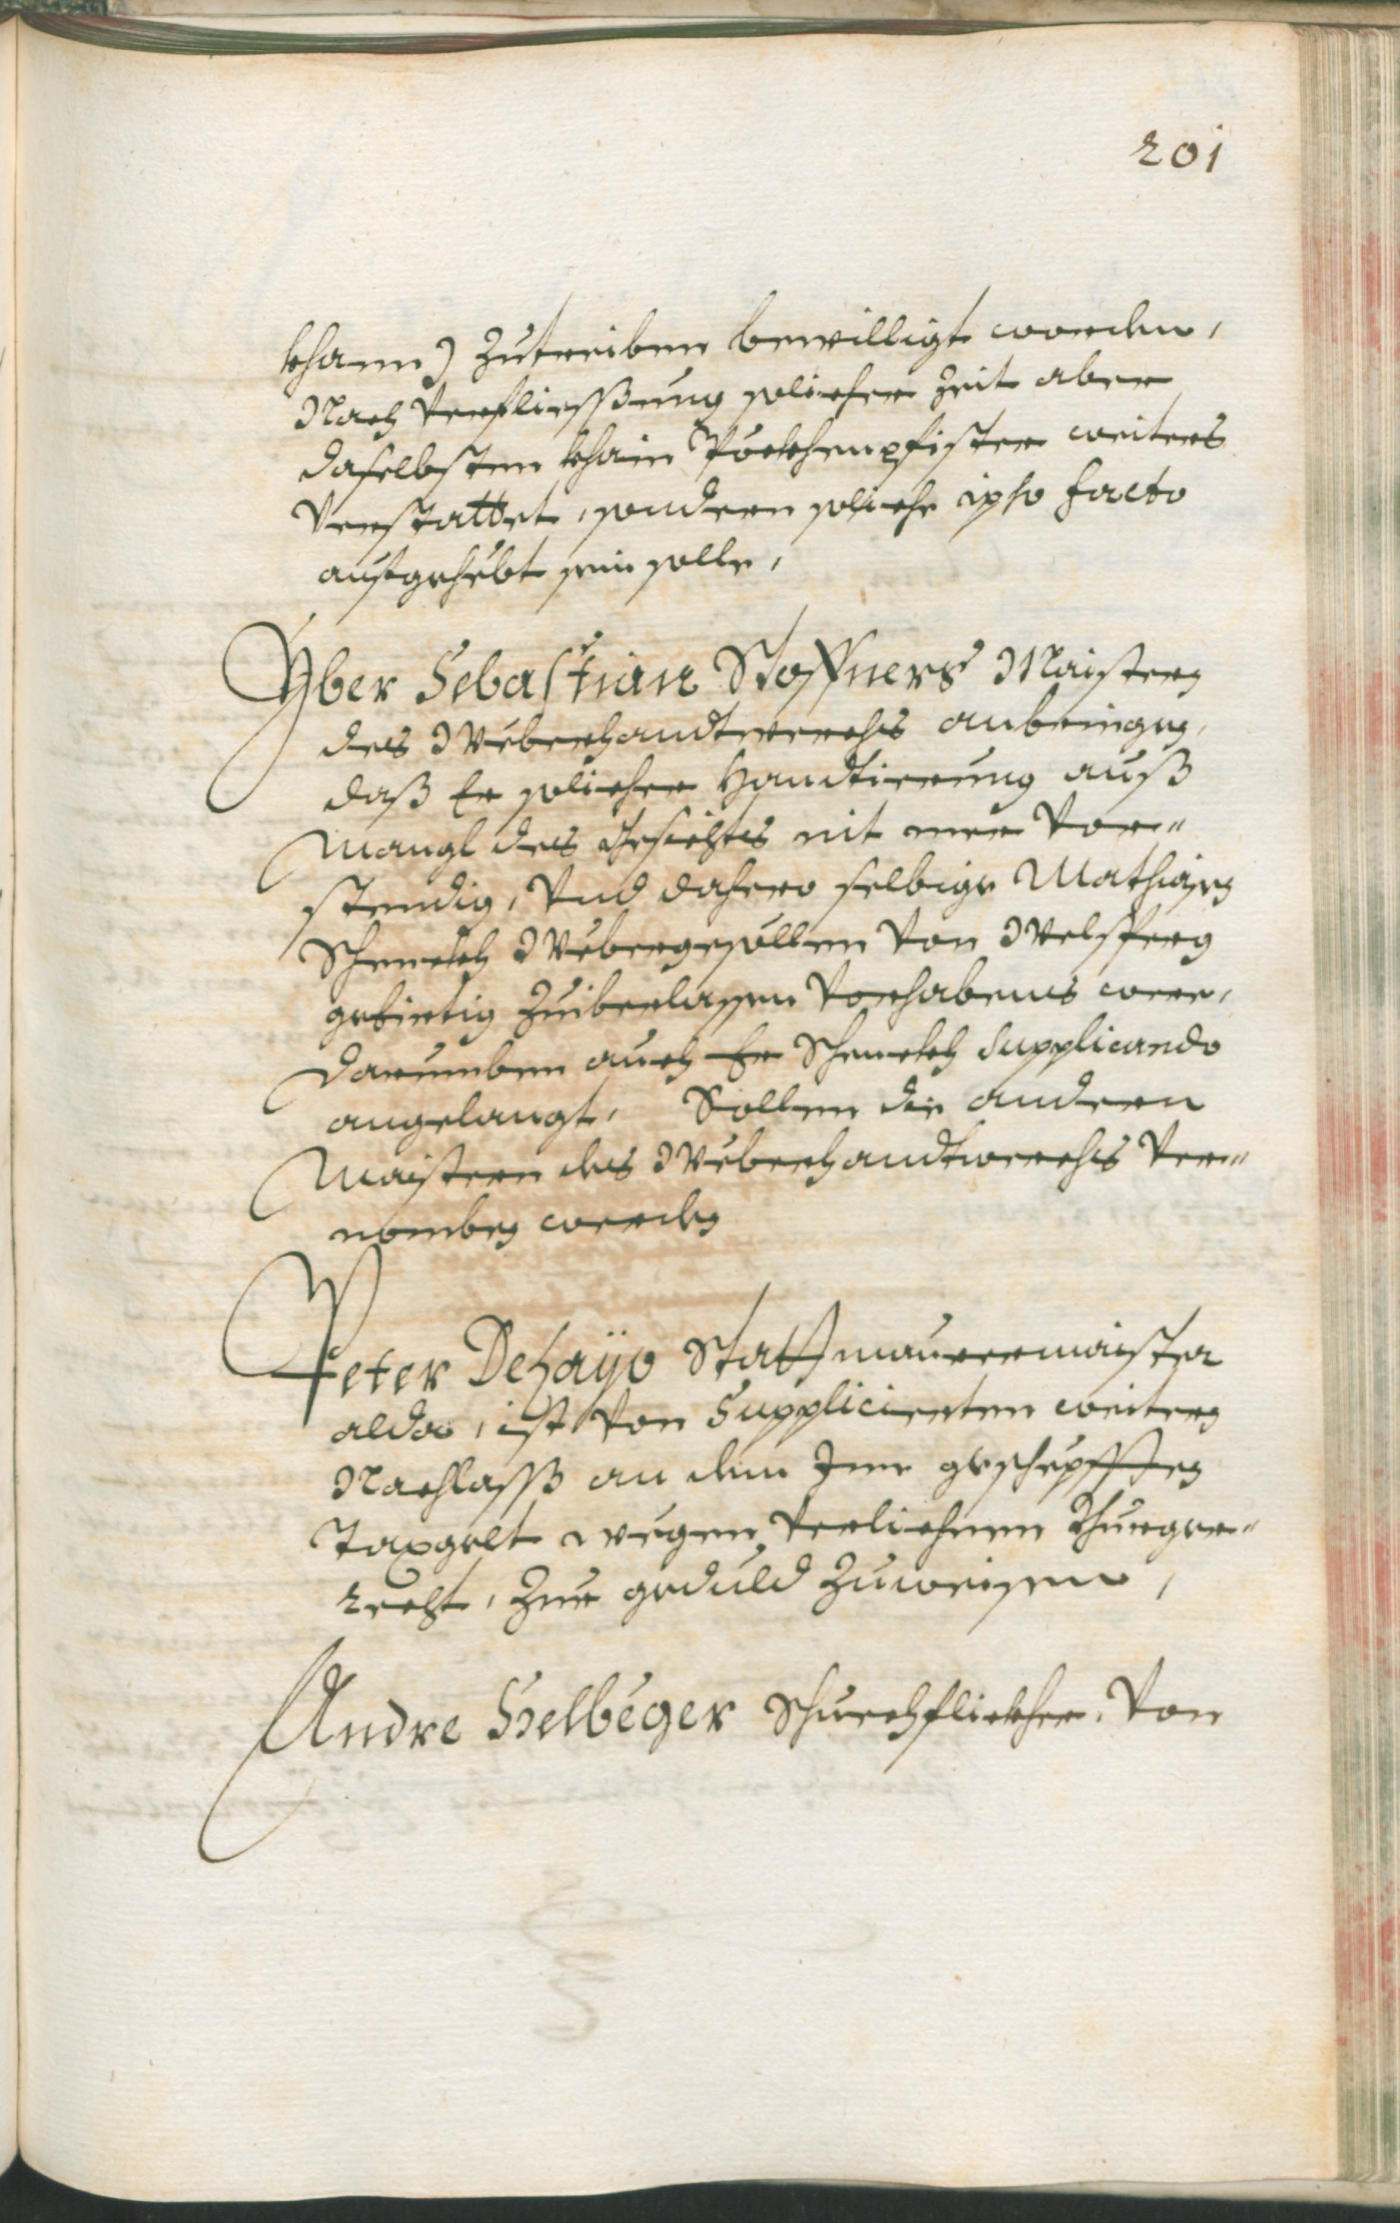 201
khann) zutreiben bewilligt worden,
Nach verfliessung solicher Zeit aber
daselbsten khain Pöckhenpfister weiters
verstattet, sondern soliche ipso facto
aufgehebt sein solle,
Yber Sebastian Stoffners Maisters
des Weberhandtwerchs anbringen,
daß Er solicher Handtierung auß
mangl des Gesichts nit mer vor-
stendig, Vnd dahero selbige Mathiasen
Schenckh Webergesöllen von Welsperg
gebirtig zuiberlassen vorhabens were,
darumben auch Er Schenckh supplicando
angelangt, Sollen die andern
Maistern des Weberhandtwerchs ver-
nomben werden
Peter Dehaÿo Stattmaurermaister
alda, ist von Supplicierten weitern
Nachlass an dem Ime geschepfften
Taxgelt wegen verlichnen Thurger-
recht, zur geduld zuweisen,
Andre Helbeger Schuechflickher, von